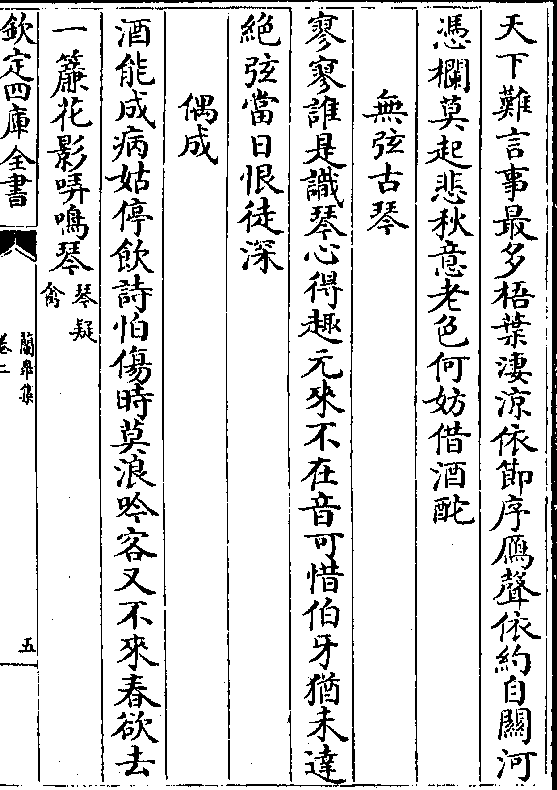 天下難言事最多梧葉淒涼依節序鴈聲依約自關河
憑欄莫起悲秋意老色何妨借酒酡
無弦古琴
寥寥誰是識琴心得趣元來不在音可惜伯牙猶未達
絶弦當日恨徒深
偶成
酒能成病姑停飲詩怕傷時莫浪吟客又不來春欲去
一簾花影哢鳴琴琴疑禽
欽定四庫全書
蘭臯集
卷二
五